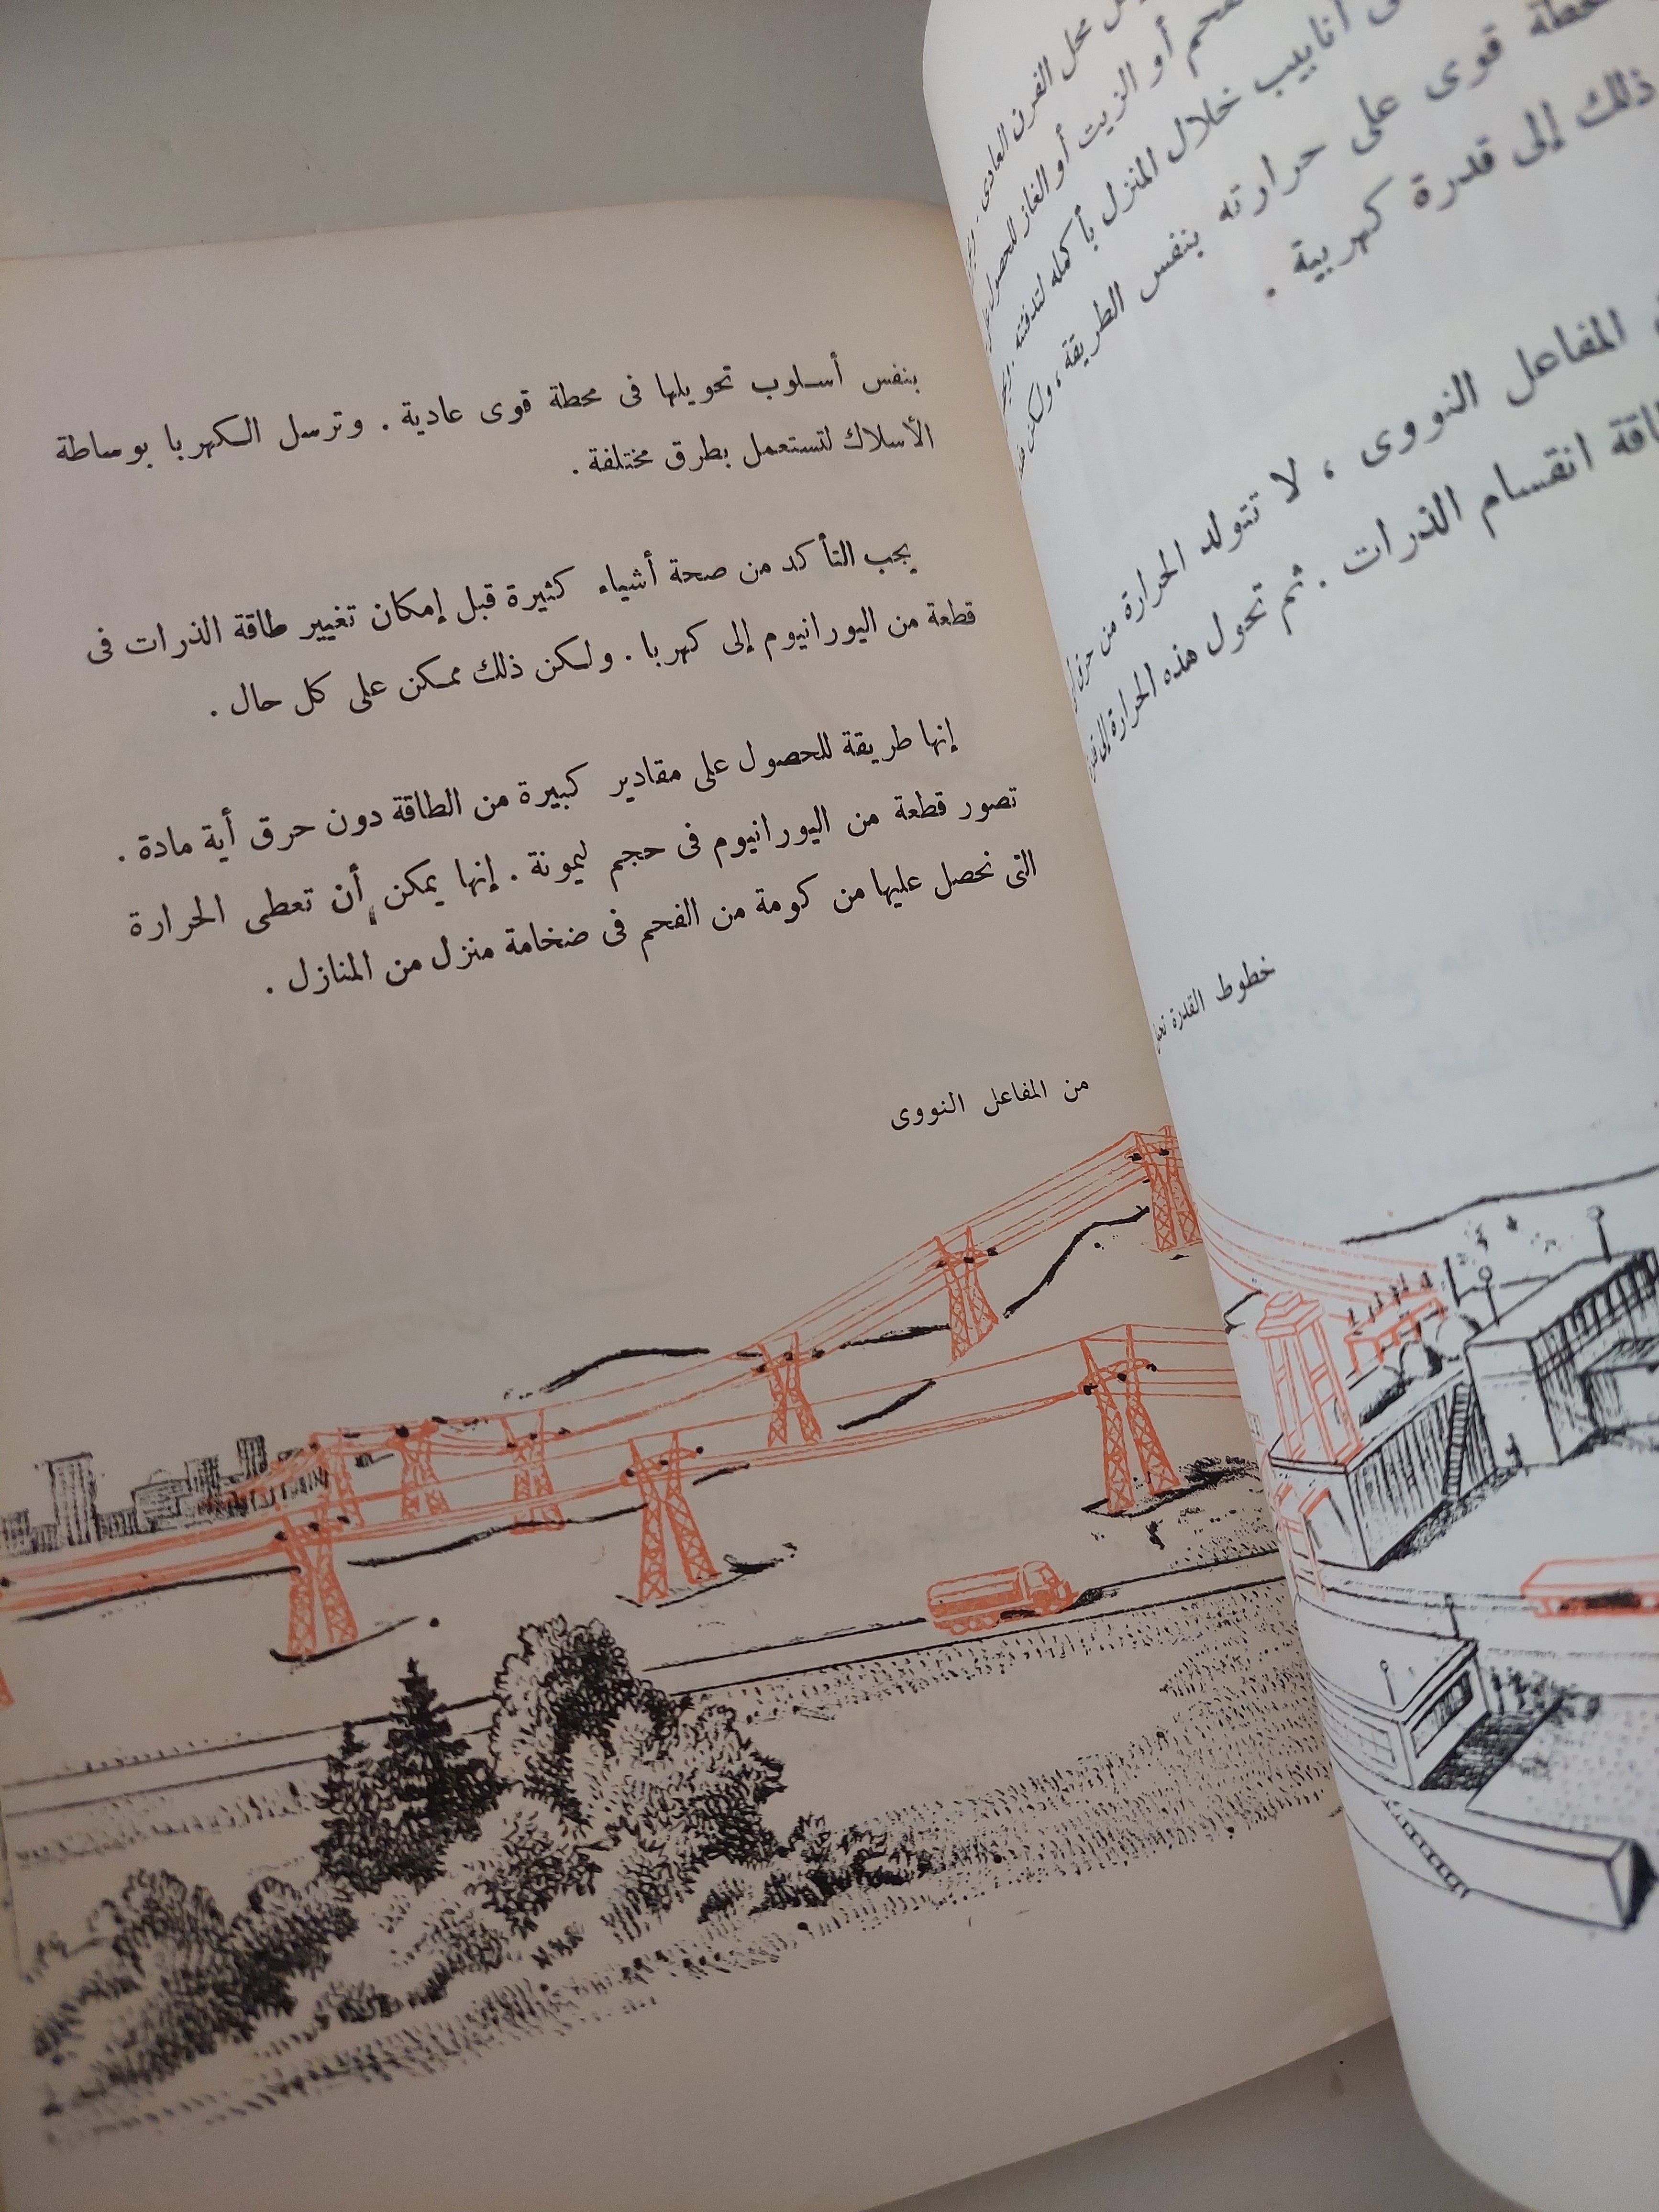 محل الفرن العادى .
أو الزيت أو الغاز للحصول
أنابيب خلال المنزل بأكمله لتدفئته .
محطة قوى على حرارته بنفس الطريقة ، ولكن
ذلك إلى قدرة كهربية .
المفاعل النووى ، لا تتولد الحرارة من حرق
انقسام الذرات . ثم تحول هذه الحرارة إلى
خطوط القدرة
بنفس أسلوب تحويلها فى محطة قوى عادية . وترسل الكهربا بوساطة
الأسلاك لتستعمل بطرق مختلفة .
يجب التأكد من صحة أشياء كثيرة قبل إمكان تغيير طاقة الذرات فى
قطعة من اليورانيوم إلى كهربا . ولكن ذلك ممكن على كل حال .
إنها طريقة للحصول على مقادير كبيرة من الطاقة دون حرق أية مادة .
تصور قطعة من اليورانيوم فى حجم ليمونة . إنها يمكن أن تعطى الحرارة
التى نحصل عليها من كومة من الفحم فى ضخامة منزل من المنازل .
من المفاعل النووى